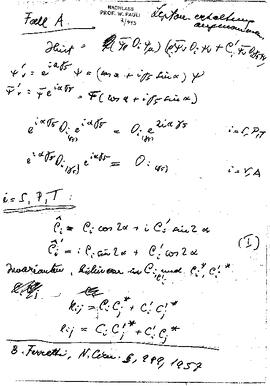 NACHLASS
PROF. W. PAULI
Fall A. Lepton erhaltung
angenommen.
Hint = (Ψ̄ Oᵢ Ψ) (Cᵢ Ψ̄ Oᵢ Ψ + Cᵢ' Ψ̄ Oᵢ γ₅ Ψ)
Ψ' = e^{iαγ₅} Ψ = (cos α + iγ₅ sin α) Ψ
Ψ̄' = Ψ̄ e^{iαγ₅} = Ψ̄ (cos α + iγ₅ sin α)
e^{iαγ₅} Oᵢ e^{iαγ₅} = Oᵢ e^{2iαγ₅} i = S, P, T
e^{iαγ₅} Oᵢ e^{iαγ₅} = Oᵢ i = V, A
i = S, P, T:
Ĉᵢ = Cᵢ cos 2α + i Cᵢ' sin 2α
Ĉᵢ' = i Cᵢ sin 2α + Cᵢ' cos 2α (I)
Invarianten, bilinear in Cᵢ, Cᵢ' und Cᵢ*, Cᵢ'*
kᵢⱼ = Cᵢ Cⱼ* + Cᵢ' Cⱼ'*
lᵢⱼ = Cᵢ Cⱼ'* + Cᵢ' Cⱼ*
B. Ferretti, N. Cim. 299, 1957